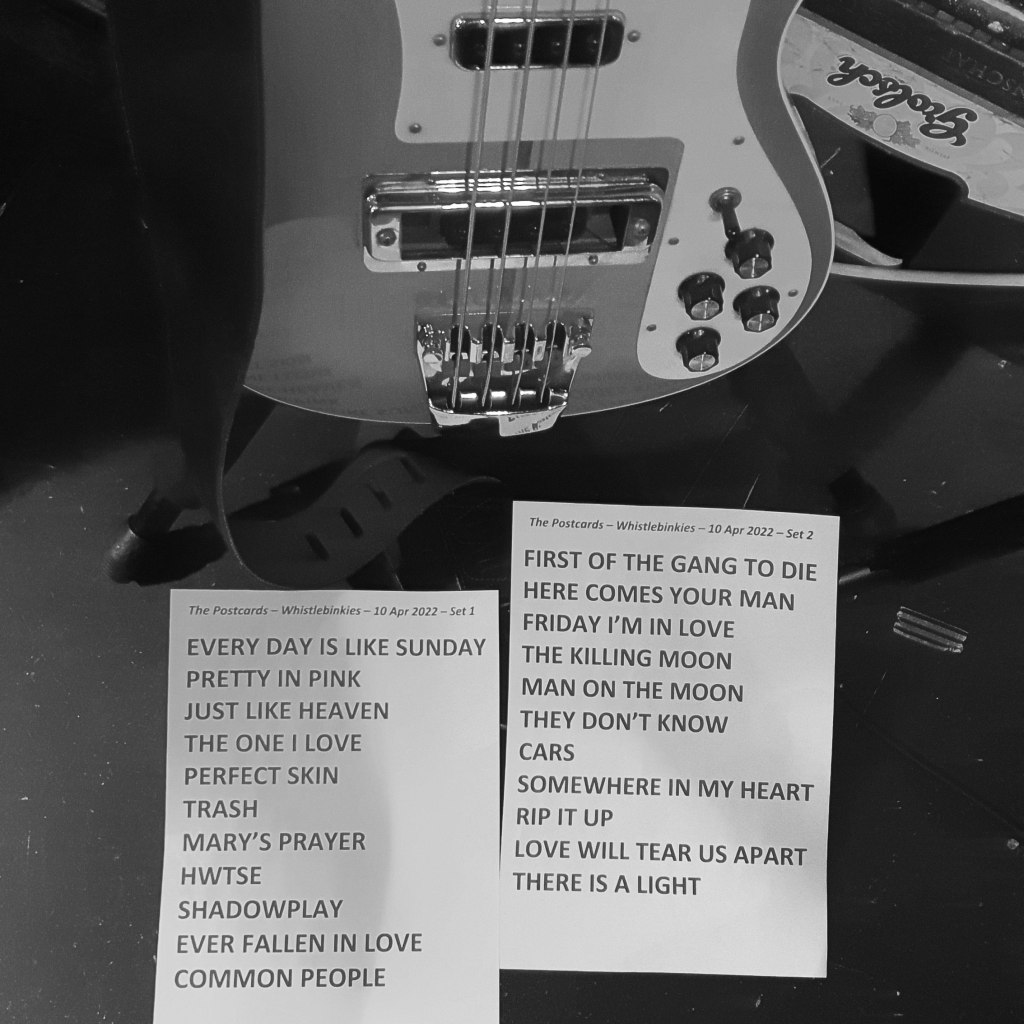 Grolsch
The Postcards – Whistlebinkies – 10 Apr 2022 – Set 1
EVERY DAY IS LIKE SUNDAY
PRETTY IN PINK
JUST LIKE HEAVEN
THE ONE I LOVE
PERFECT SKIN
TRASH
MARY’S PRAYER
HWTSE
SHADOWPLAY
EVER FALLEN IN LOVE
COMMON PEOPLE
The Postcards – Whistlebinkies – 10 Apr 2022 – Set 2
FIRST OF THE GANG TO DIE
HERE COMES YOUR MAN
FRIDAY I’M IN LOVE
THE KILLING MOON
MAN ON THE MOON
THEY DON’T KNOW
CARS
SOMEWHERE IN MY HEART
RIP IT UP
LOVE WILL TEAR US APART
THERE IS A LIGHT